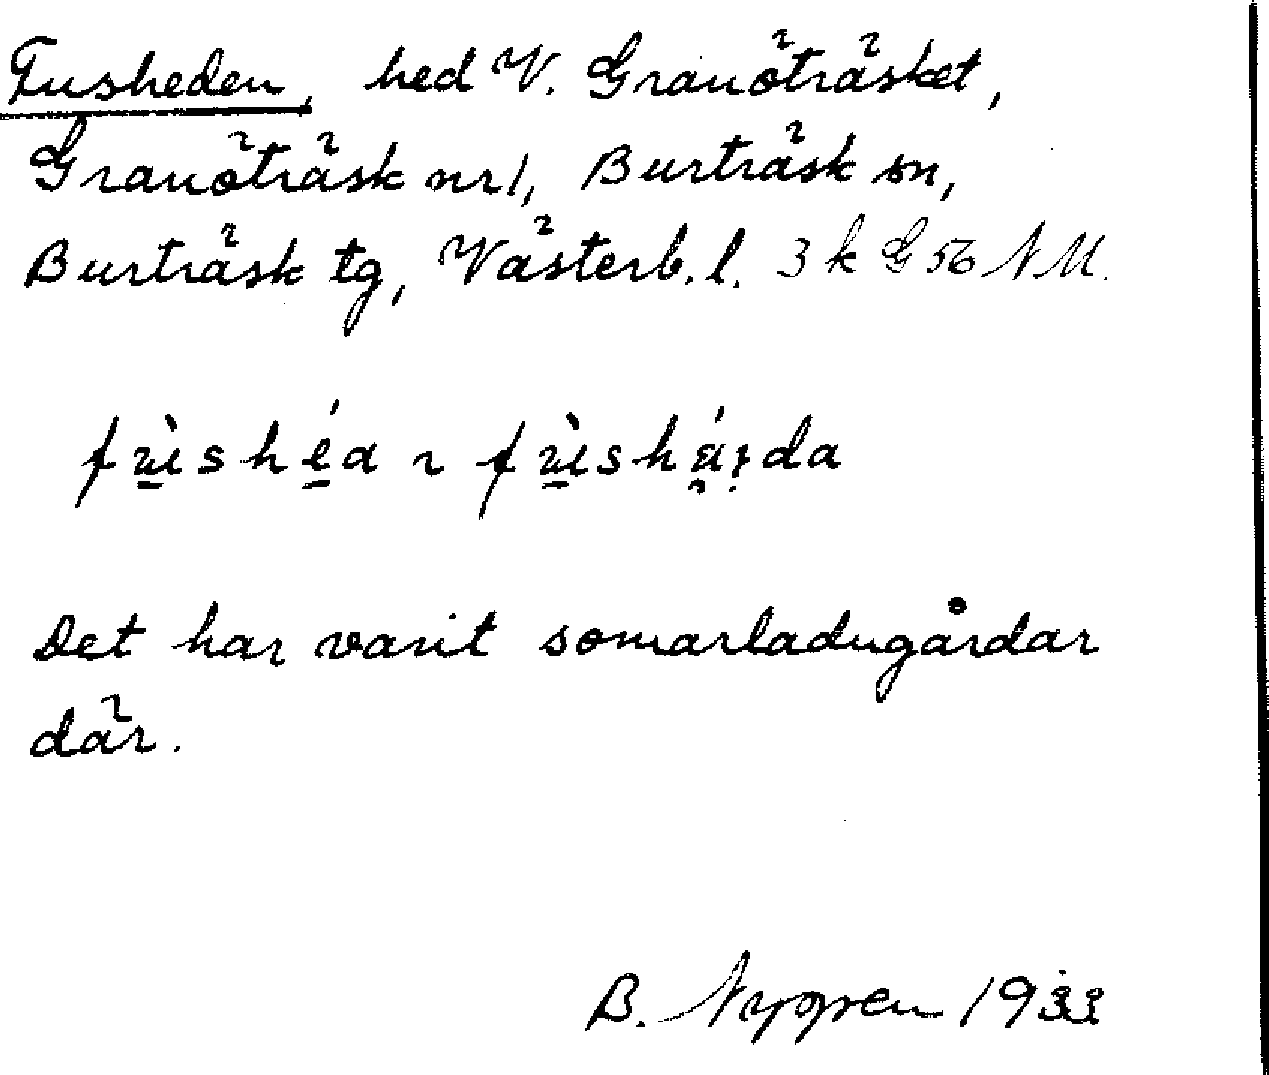 Fusheden, hed V. Granöträsket,
Granöträsk nr 1, Burträsk sn,
Burträsk tg, Västerb. l. 3 k G 56 NM.
Det har varit somarladugårdar
där.
B. Nygren 1933